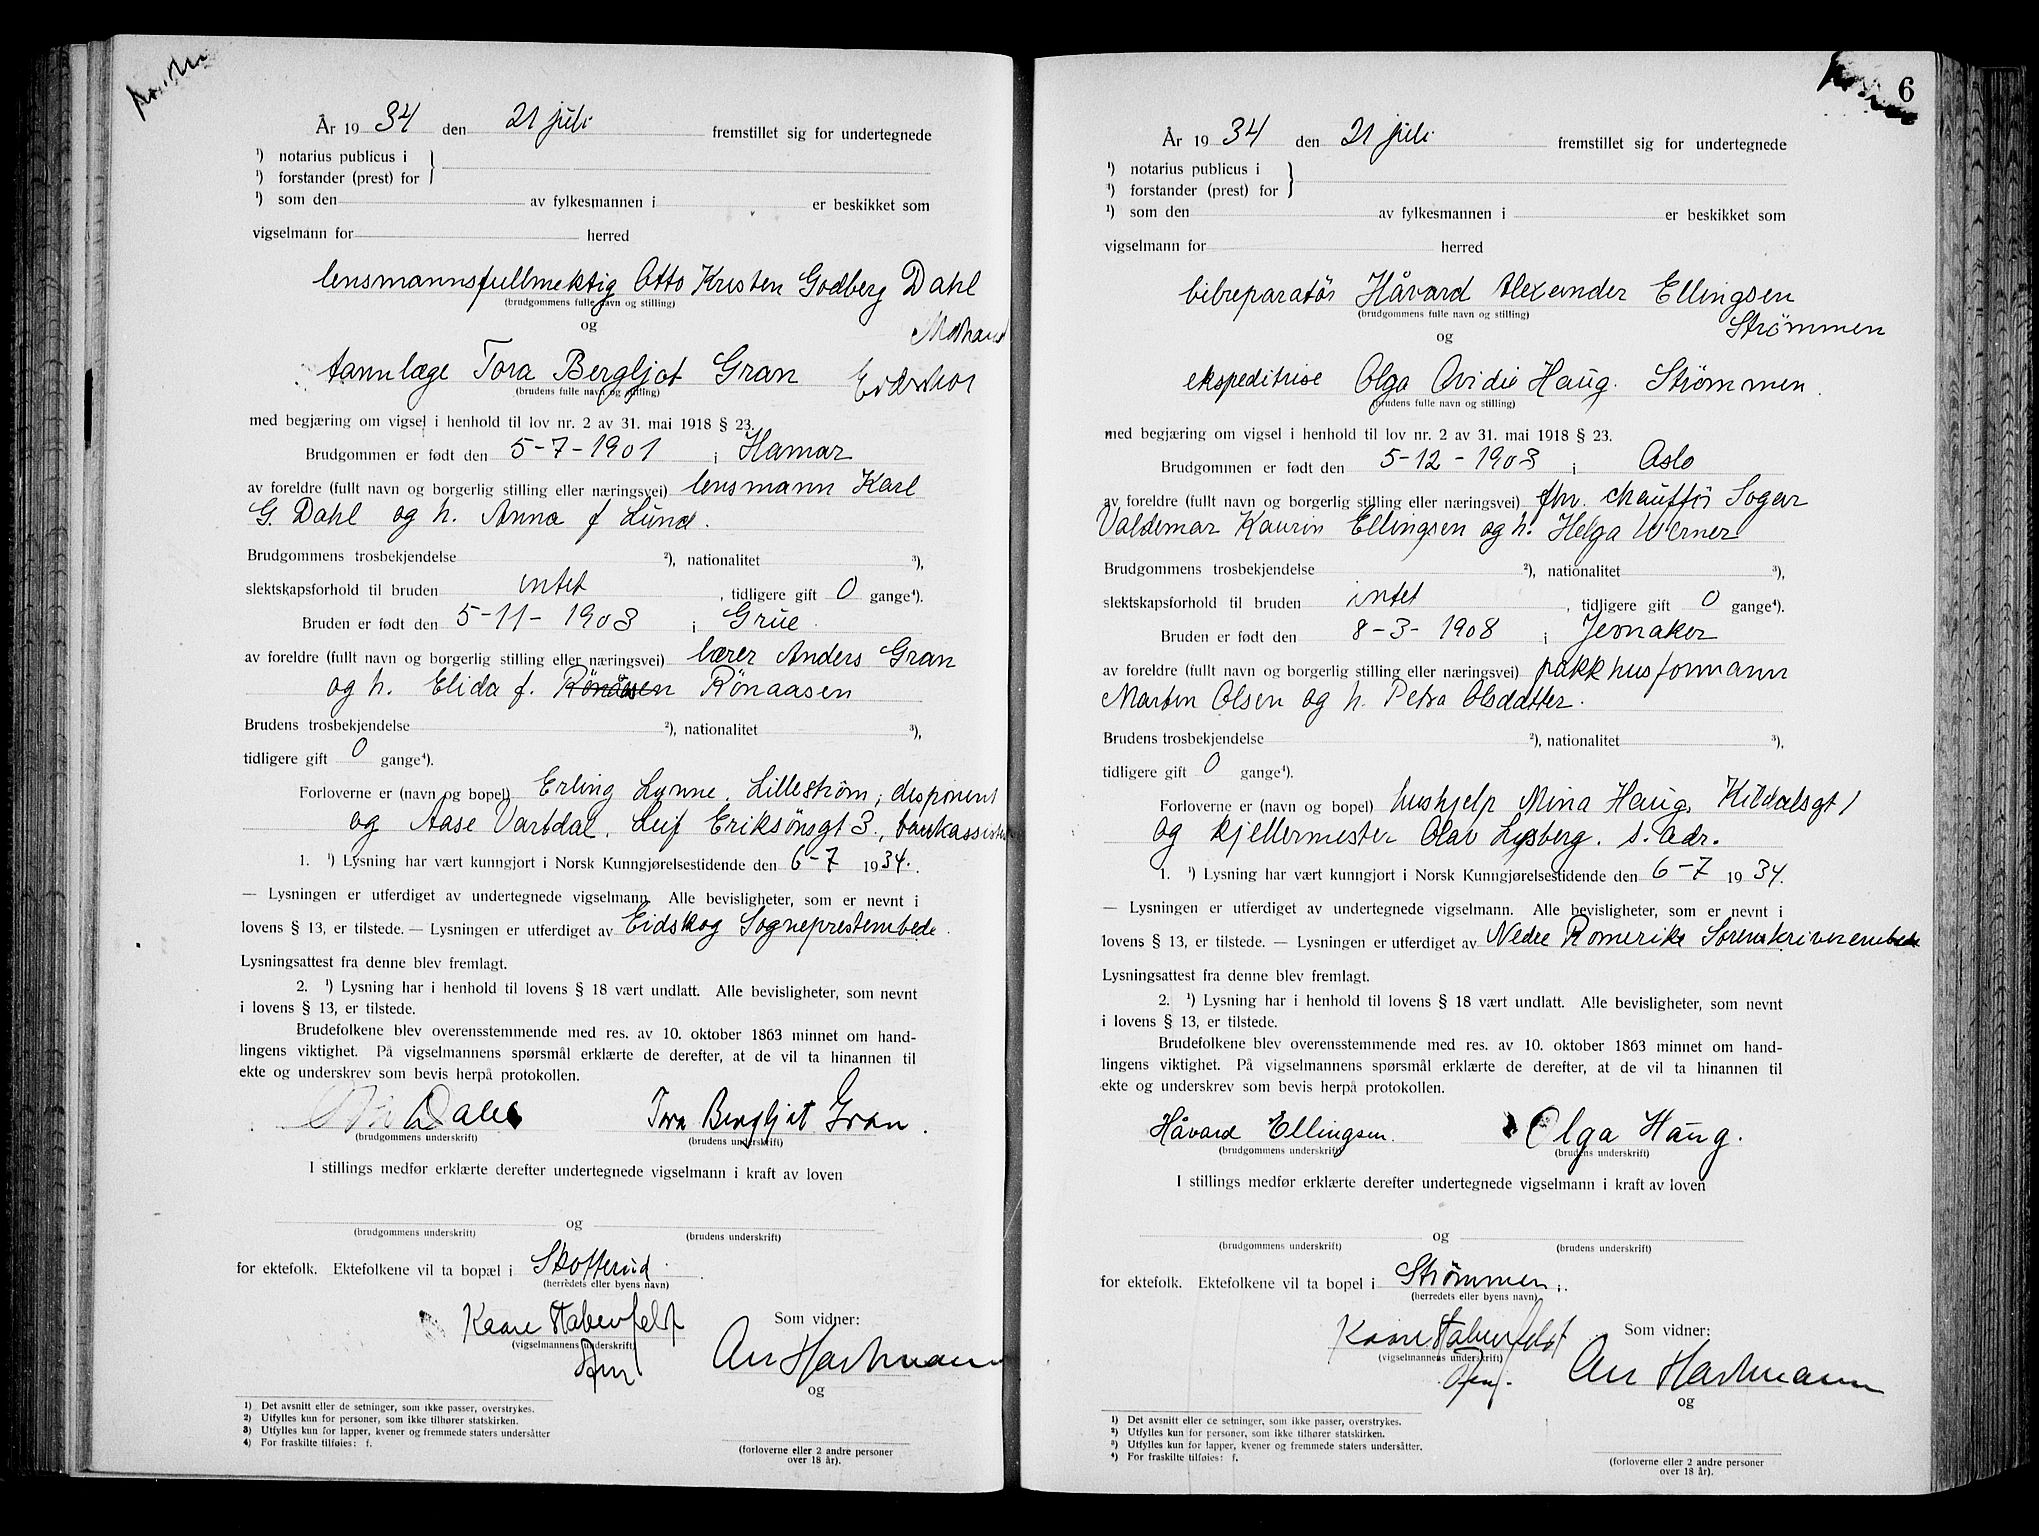 År 19 34 den 21 juli fremstillet sig for undertegnede
¹) notarius publicus i
¹) forstander (prest) for
¹) som den av fylkesmannen i er beskikket som
vigselmann for herred
lensmannsfullmektig Otto Kristen Godberg Dahl
(brudgommens fulle navn og stilling)
og
tannlæge Tora Bergljot Gran
(brudens fulle navn og stilling)
med begjæring om vigsel i henhold til lov nr. 2 av 31. mai 1918 § 23.
Brudgommen er født den 5-7-1901 i Hamar
av foreldre (fullt navn og borgerlig stilling eller næringsvei) lensmann Karl
G. Dahl og h. Anna f Lund.
Brudgommens trosbekjendelse ²), nationalitet ³),
slektskapsforhold til bruden intet, tidligere gift 0 gange⁴).
Bruden er født den 5-11-1903 i Grue.
av foreldre (fullt navn og borgerlig stilling eller næringsvei) lærer Anders Gran
og h. Elida f. Rönaasen
Brudens trosbekjendelse ²), nationalitet ³),
tidligere gift 0 gange⁴).
Forloverne er (navn og bopel) Erling Lynne, Lilleström, disponent
og Aase Vartdal, Leif Eriksönsgt 3.,
1. ¹) Lysning har vært kunngjort i Norsk Kunngjørelsestidende den 6-7 1934.
— Lysningen er utferdiget av undertegnede vigselmann. Alle bevisligheter, som er nevnt i
lovens § 13, er tilstede. — Lysningen er utferdiget av Eidskog Sogneprestembede.
Lysningsattest fra denne blev fremlagt.
2. ¹) Lysning har i henhold til lovens § 18 vært undlatt. Alle bevisligheter, som nevnt
i lovens § 13, er tilstede.
Brudefolkene blev overensstemmende med res. av 10. oktober 1863 minnet om hand-
lingens viktighet. På vigselmannens spørsmål erklærte de derefter, at de vil ta hinannen til
ekte og underskrev som bevis herpå protokollen.
Tora Bergljot Gran.
(brudgommens underskrift) (brudens underskrift)
I stillings medfør erklærte derefter undertegnede vigselmann i kraft av loven
og
(brudgommens underskrift) (brudens underskrift)
for ektefolk. Ektefolkene vil ta bopæl i Skotterud.
(herredets eller byens navn)
Som vidner:
Kaare Habenfeldt
(vigselmannens underskrift)
Hartmann
og
1) Det avsnitt eller de setninger, som ikke passer, overstrykes.
2) Utfylles kun for personer, som ikke tilhører statskirken.
3) Utfylles kun for lapper, kvener og fremmede staters undersåtter
4) For fraskilte tilføies: f.
(forloverne eller 2 andre personer
over 18 år).
6
År 19 34 den 21 juli fremstillet sig for undertegnede
¹) notarius publicus i
¹) forstander (prest) for
¹) som den av fylkesmannen i er beskikket som
vigselmann for herred
bilreparatör Håvard Alexander Ellingsen
(brudgommens fulle navn og stilling) Strømmen
og
ekspeditrise Olga Ovidie Haug. Strømmen.
(brudens fulle navn og stilling)
med begjæring om vigsel i henhold til lov nr. 2 av 31. mai 1918 § 23.
Brudgommen er født den 5-12-1903 i Oslo
av foreldre (fullt navn og borgerlig stilling eller næringsvei) fhv. chaufför
Valdemar Kaurin Ellingsen og h. Helga Werner
Brudgommens trosbekjendelse ²), nationalitet ³),
slektskapsforhold til bruden intet, tidligere gift 0 gange⁴).
Bruden er født den 8-3-1908 i Jevnaker
av foreldre (fullt navn og borgerlig stilling eller næringsvei) pakkhusformann
Martin Olsen og h. Petra Olsdatter.
Brudens trosbekjendelse ²), nationalitet ³),
tidligere gift 0 gange⁴).
Forloverne er (navn og bopel) hushjelp Mina Haug, Kildalsgt 1
og kjellermester Olav Lysberg. s. adr.
1. ¹) Lysning har vært kunngjort i Norsk Kunngjørelsestidende den 6-7 1934.
— Lysningen er utferdiget av undertegnede vigselmann. Alle bevisligheter, som er nevnt i
lovens § 13, er tilstede. — Lysningen er utferdiget av Nedre Romerike Sorenskriverembede
Lysningsattest fra denne blev fremlagt.
2. ¹) Lysning har i henhold til lovens § 18 vært undlatt. Alle bevisligheter, som nevnt
i lovens § 13, er tilstede.
Brudefolkene blev overensstemmende med res. av 10. oktober 1863 minnet om hand-
lingens viktighet. På vigselmannens spørsmål erklærte de derefter, at de vil ta hinannen til
ekte og underskrev som bevis herpå protokollen.
Håvard Ellingsen. Olga Haug.
(brudgommens underskrift) (brudens underskrift)
I stillings medfør erklærte derefter undertegnede vigselmann i kraft av loven
og
(brudgommens underskrift) (brudens underskrift)
for ektefolk. Ektefolkene vil ta bopel i Strømmen.
(herredets eller byens navn)
Som vidner:
Kaare Habenfeldt
(vigselmannens underskrift)
Hartmann
og
1) Det avsnitt eller de setninger, som ikke passer, overstrykes.
2) Utfylles kun for personer, som ikke tilhører statskirken.
3) Utfylles kun for lapper, kvener og fremmede staters undersåtter.
4) For fraskilte tilføies: f.
(forloverne eller 2 andre personer
over 18 år).